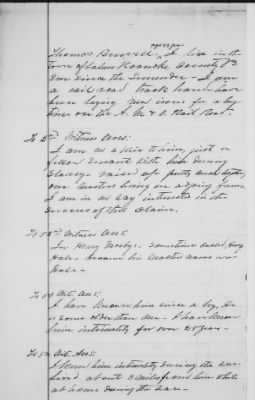 aged 28 years
Thomas Burwell, "I live in the
town of Salem Roanoke County Va
Ever since the Surrender - I am
a rail road track hand - have
been laying new irons for a long
time on the A. M. & O. Rail Road.
To 2nd Witness Ans:
I am no a kin to him, just a
fellow servant with him during
Slavery - raised up pretty much together,
our masters living on adjoining farms
I am in no way interested in the
success of this Claim.
To 52nd Witness Ans:
Im Henry Mosby - sometimes called Henry
Hale - because his master name was
Hale -
To 53 Wit. Ans:
I have known him since a boy, he
is some older than me. I have known
him intimately for over 25 years -
To 54 Wit. Ans:
I knew him intimately during the war
lived about 3 miles from him while
at home during the war -